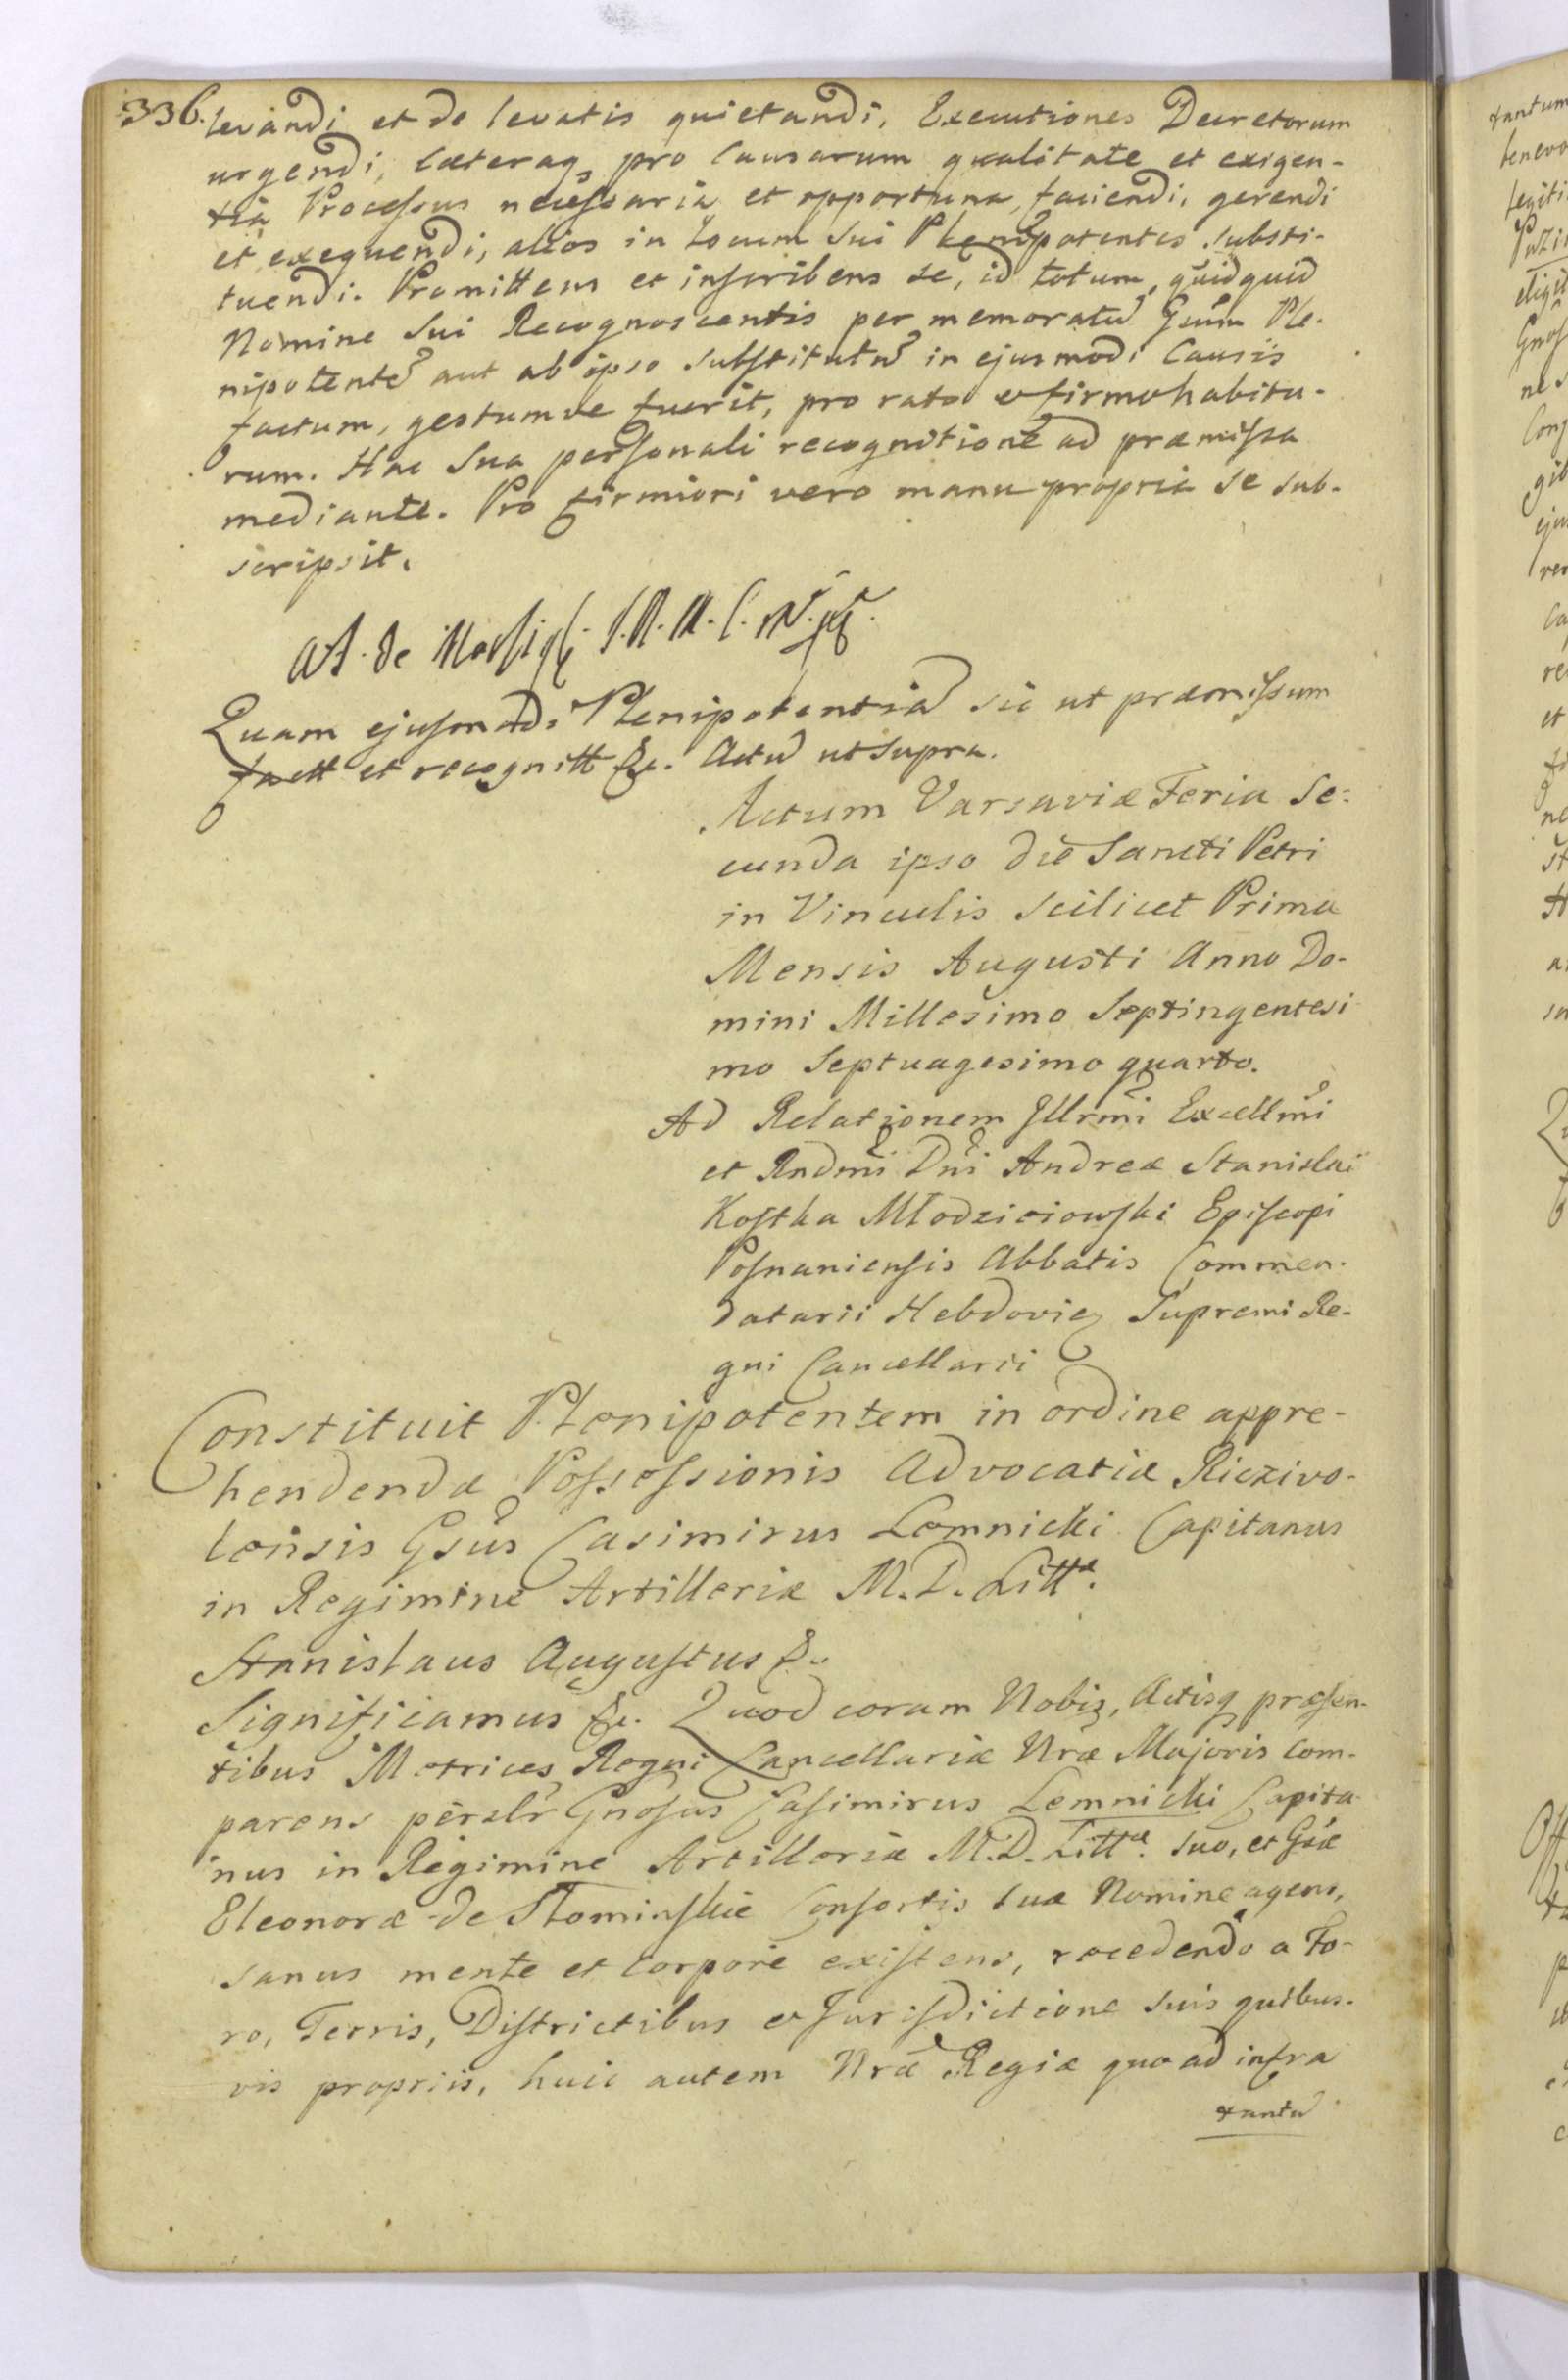 336.
levandi et de levatis quietandi, Executiones Decretorum
urgendi, Cæteraq pro Causarum qualitate et exigen-
tia Processus necessaria et opportuna, faciendi, gerendi
et exequendi, alios in Locum Sui Plenipotentes substi-
tuendi. Promittens et inscribens se, id totum, quidquid
Nomine Sui Recognoscentis per memoratũ Gsũm Ple-
nipotentẽ aut ab ipso substitutũ in ejusmodi Causis
factum, gestumve fuerit, pro rato et firmo habitu-
rum. Hac Sua personali recognitione ad præmissa
mediante. Pro firmiori vero manu propria se sub-
scripsit.
Quam ejusmodi Plenipotentiã sic ut præmissum
factt et recognitt &c. Actũ ut Supra.
Actum Varsaviæ Feria Se-
cunda ipso die Sancti Petri
in Vinculis Scilicet Prima
Mensis Augusti Anno Do-
mini Millesimo Septingentesi
mo Septuagesimo quarto.
Ad Relationem Illrmi Excellmi
et Rndmi Dni Andreæ Stanislai
Kostka Młodzieiowski Episcopi
Posnaniensis Abbatis Commen-
datarii Hebdovien Supremi Re-
gni Cancellarii
Constituit Plenipotentem in ordine appre-
hendendæ Possessionis Advocatiæ Riczivo-
lensis Gsus Casimirus Lemnicki Capitanus
in Regimine Artilleriæ M. D. Littæ.
Stanislaus Augustus &c.
Significamus &c. Quod coram Nobis, Actisq præsen-
tibus Metrices Regni Cancellariæ Nræ Majoris Com-
parens perslr Gnosus Casimirus Lemnicki Capita-
nus in Regimine Artilleriæ M. D. Littæ. Suo, et Gsæ
Eleonoræ de Słominskie Consortis Suæ Nomine agens,
sanus mente et Corpore existens, recedendo a Fo-
ro, Terris, Districtibus et Jurisdictione suis quibus-
vis propriis, huic autem Nræ Regiæ quo ad infra
tantũ